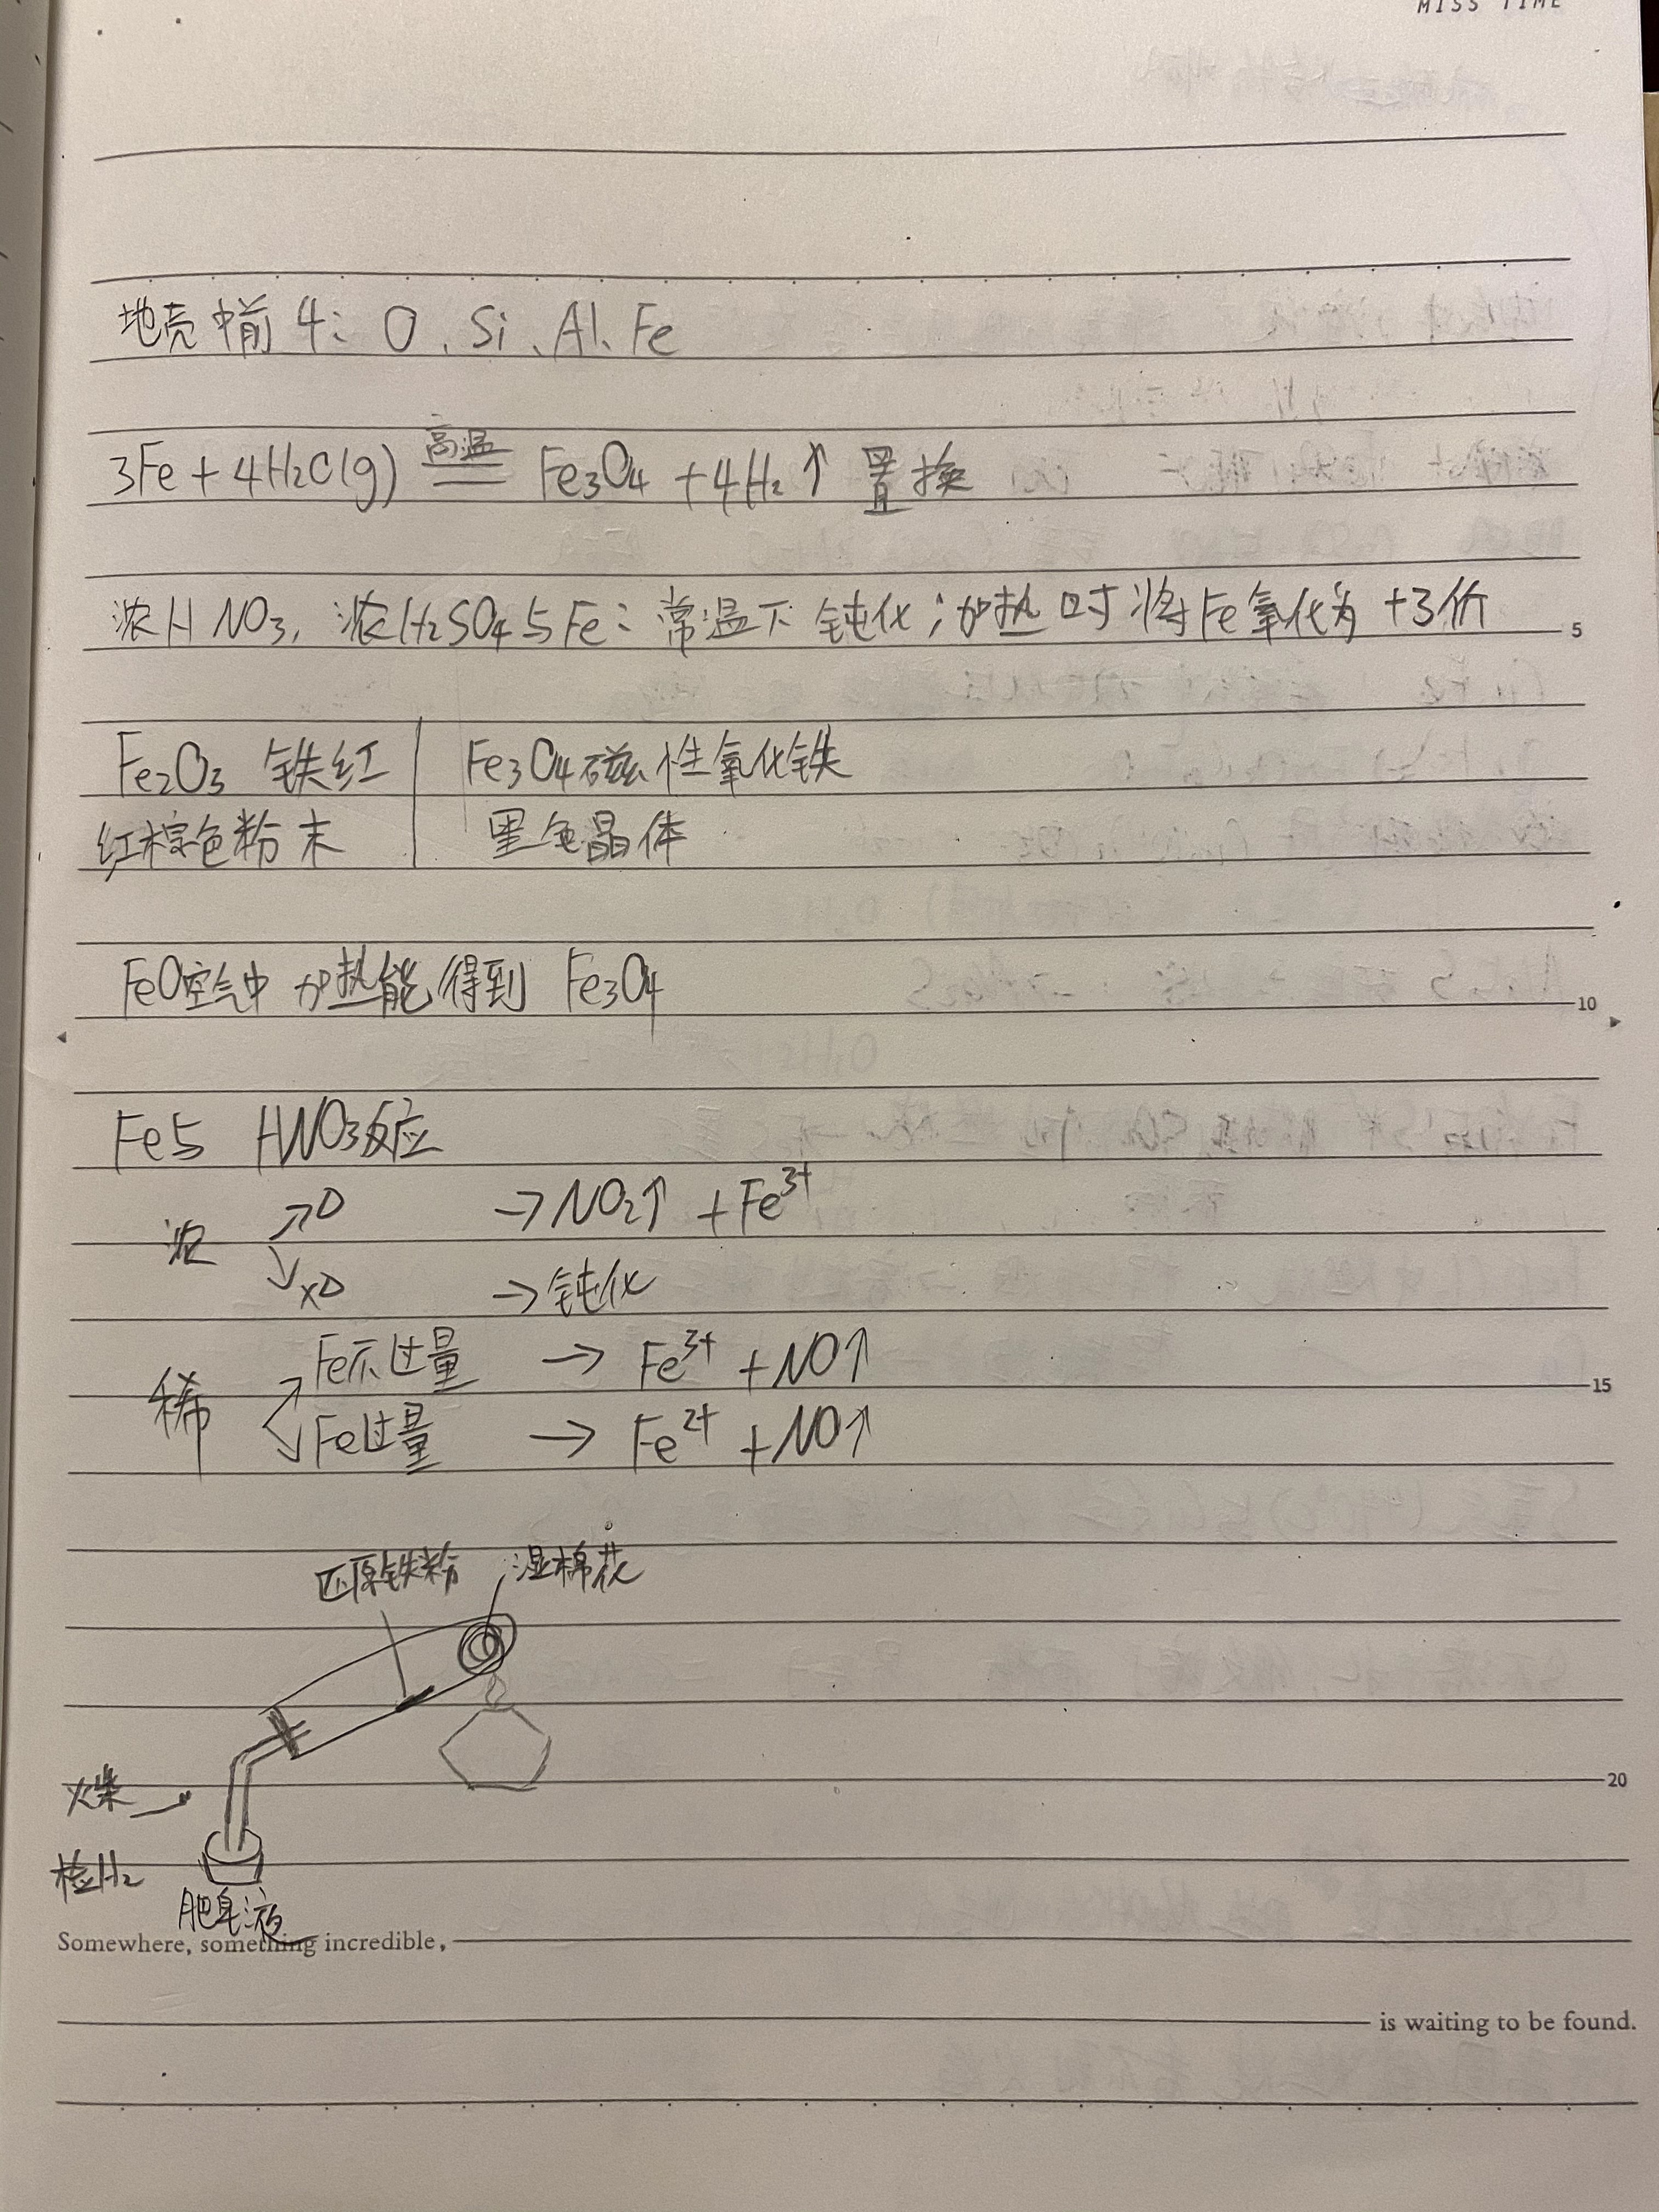 MISS TIME
地壳中前4：O、Si、Al、Fe
3Fe + 4H₂O(g) 高温 Fe₃O₄ + 4H₂↑ 置换
浓HNO₃，浓H₂SO₄与Fe：常温下钝化；加热时将Fe氧化为+3价
5
Fe₂O₃ 铁红 Fe₃O₄磁性氧化铁
红棕色粉末 黑色晶体
FeO空气中加热能得到 Fe₃O₄
10
Fe与HNO₃反应
浓 △ → NO₂↑ + Fe³⁺
×△ → 钝化
稀 Fe不过量 → Fe³⁺ + NO↑
15
Fe过量 → Fe²⁺ + NO↑
还原铁粉 湿棉花
火柴
20
检H₂
肥皂液
Somewhere, something incredible,
is waiting to be found.